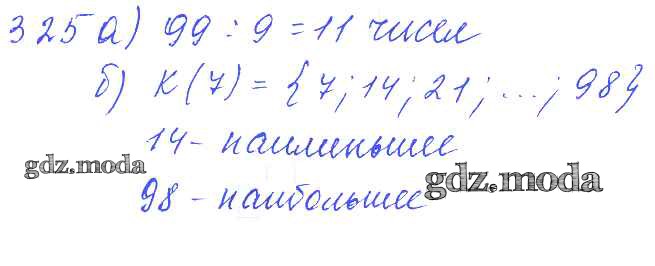 325 а) 99 : 9 = 11 чисел
б) К(7) = {7; 14; 21; ...; 98}
14 - наименьшее
gdz.moda
98 - наибольшее
gdz.moda